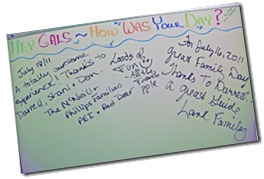 HEY GALS ~ HOW WAS YOUR DAY?
July 18/11
A totally awesome
experience! Thanks to
Darrell, Shani & Don.
The McNeill &
Phillips Families
PEI & Red Deer
Loads of
Fun
July 16, 2011
Great Family Day
Thanks To Darrell
a great Guide
Family